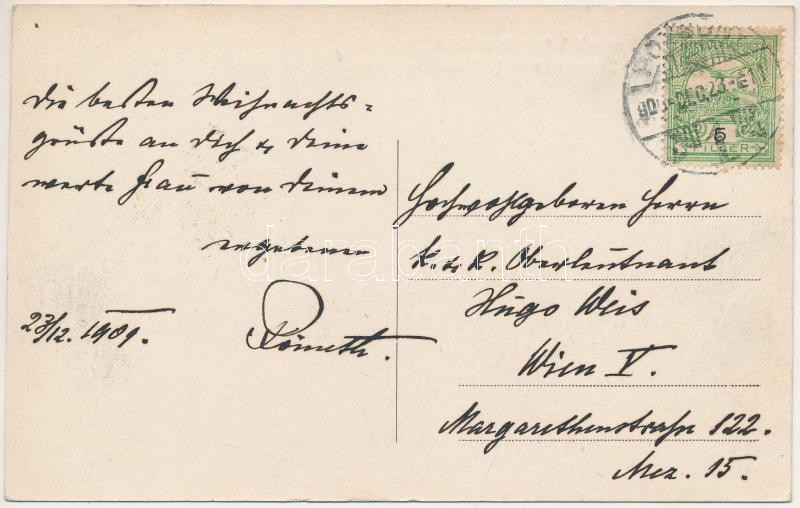 Die besten Weihnachts-
grüße an Dich & Deine
werte Frau von Deinem
ergebenen
23/12. 1909.
Hochwohlgeboren Herrn
k. & k. Oberleutnant
Hugo Weis
Wien V.
Margarethenstraße 122.
Mez. 15.
909 DEC. 23
5
FILLER
darabanth